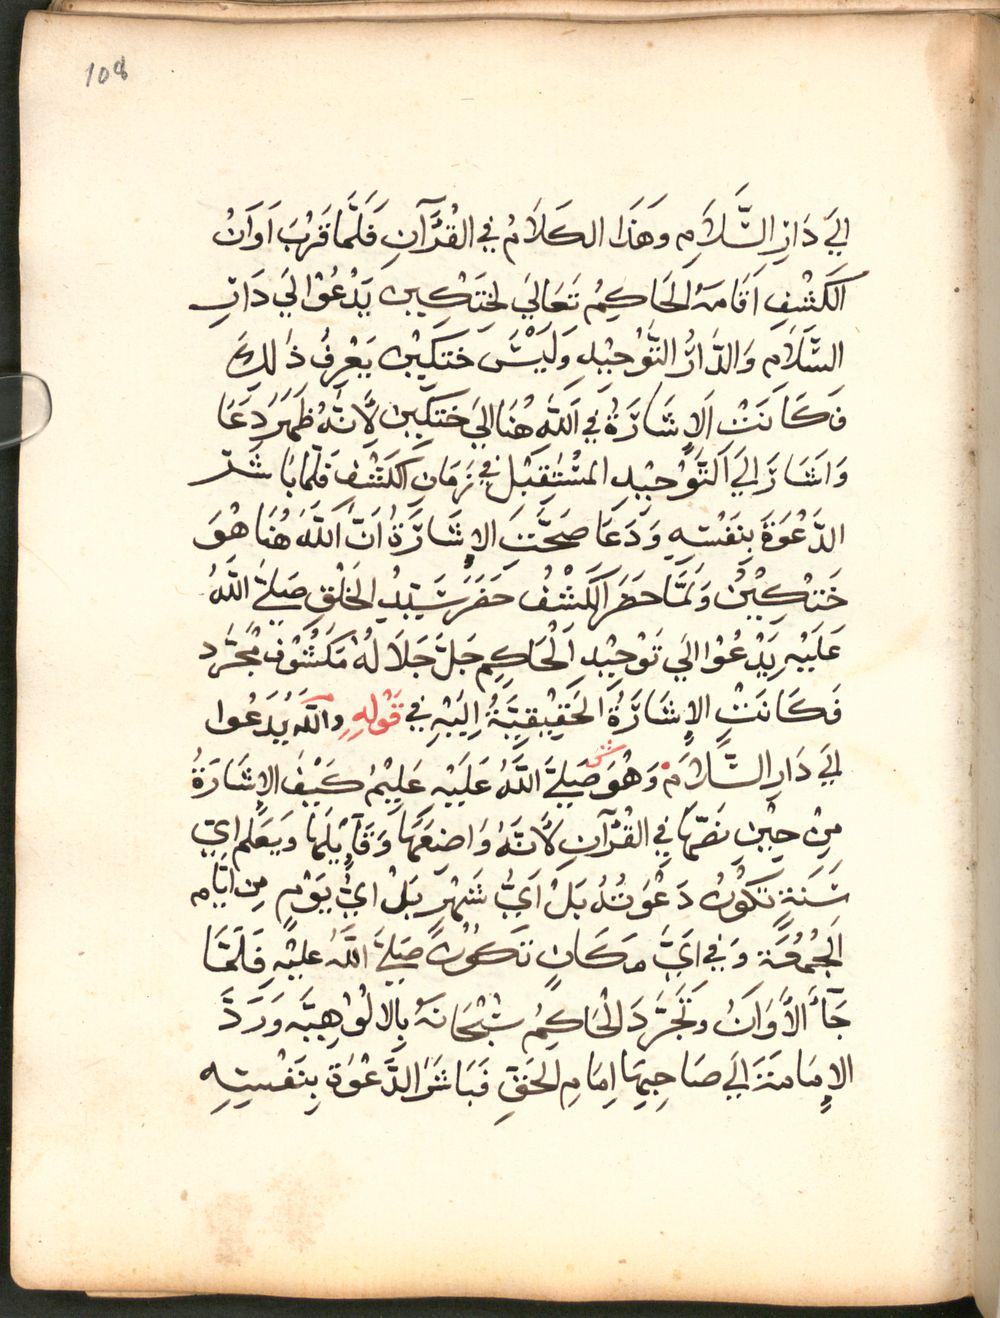 108
الَي دَارِ السَّلَامِ وهَذَا الكَلَامُ فِي القُرْآنِ فَلَمَّا قَرُبَ اَوَانُ
الكَشْفِ اَقَامَهُ الحَاكِمُ تَعَالَي لخَتكِين يَدْعُوْا لَي دَارِ
السَّلَامِ وَالدَّارُ التَّوْحِيْدِ وَلَيْسَ خَتكِيْن يَعْرِفُ ذٰلِكَ
فَكَانَتْ اَلاِشَارَةُ فِي اَللّٰه هُنَا اليَ ختكين لأَنَّهُ ظَهَرَ دَعَا
وَاَشَارَ اِلَي اَلتَّوْحِيْدِ المُسْتَقِبْل فِي زَمَانِ الكَشْف فَلَمَّا بَاشَرَ
الدَّعْوَةَ بِنَفْسِهِ وَدَعَا صَحَّتِ الاِشَارَةُ اَنَّ اَللّٰهَ هُنَا هُوَ
خَتكِيْنُ وَلَمَّا حضَرَ اَلكَشْفُ حَضَرَ سَيّدُ الخَلْقِ صَلَيَّ اللّٰهُ
عَلَيْهِ يَدْعُوْا الَي تَوْحِيْدِ اَلْحَاكِمِ جَلَّ جَلَالهُ مَكشُوْف مُجَرَّد
فَكَانَتْ الاِشَارَةُ اَلحَقِيْقِيَّةُ اِلَيْهِ فِي قَوْلِهِ واَللّٰهُ يَدَعُوا
لَي دَارِ السَّلَام وَهُوَ صَلَيَّ اَللّٰهُ عَلَيْهِ عَلِيْمُ كَيْفُ الاِشَارَةُ
مِنْ حِيْنِ نَصّهَا فِي القُرْآنِ لأَنَّهُ وَاضِعَهَا وَقَآيِلَهَا ويَعَلم اي
سَنَةٍ تَكُوْنُ دَعْوَتُهُ بَلْ اَيُّ شَهْرٍ بَلْ ايُّ يَوْمٍ مِن اَيَّام
اَلجُمُعَة وَفِي اَيِّ مكَانٍ تَكُوْنُ صَلَيَّ اَللّٰهُ عَليْهِ فَلَمَّا
جَآءَ الأَوَانُ وتَجَرَّدَ الْحَاكِمُ سُبْحَانَهُ بِالالُوْهِيَّه وَرَدَّ
الاِمَامَةَ اِلَي صَاحِبِهَا اِمَامِ الحَقِّ فَبَاشَرَ الدَّعْوَةَ بِنَفْسِهِ